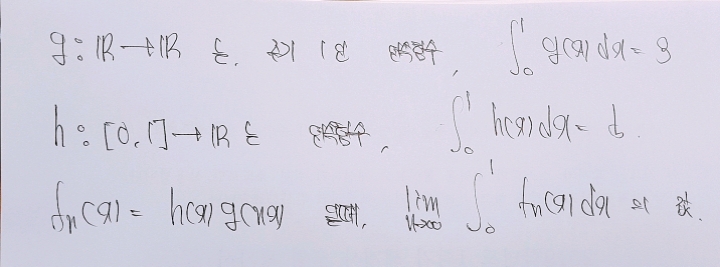 g:ℝ→ℝ 는. 주기 1인 연속함수, ∫₀¹ g(x)dx=3
h:[0,1]→ℝ 는 연속함수, ∫₀¹ h(x)dx=
fₙ(x)=h(x)g(nx) 일때, lim n→∞ ∫₀¹ fₙ(x)dx 의 값.